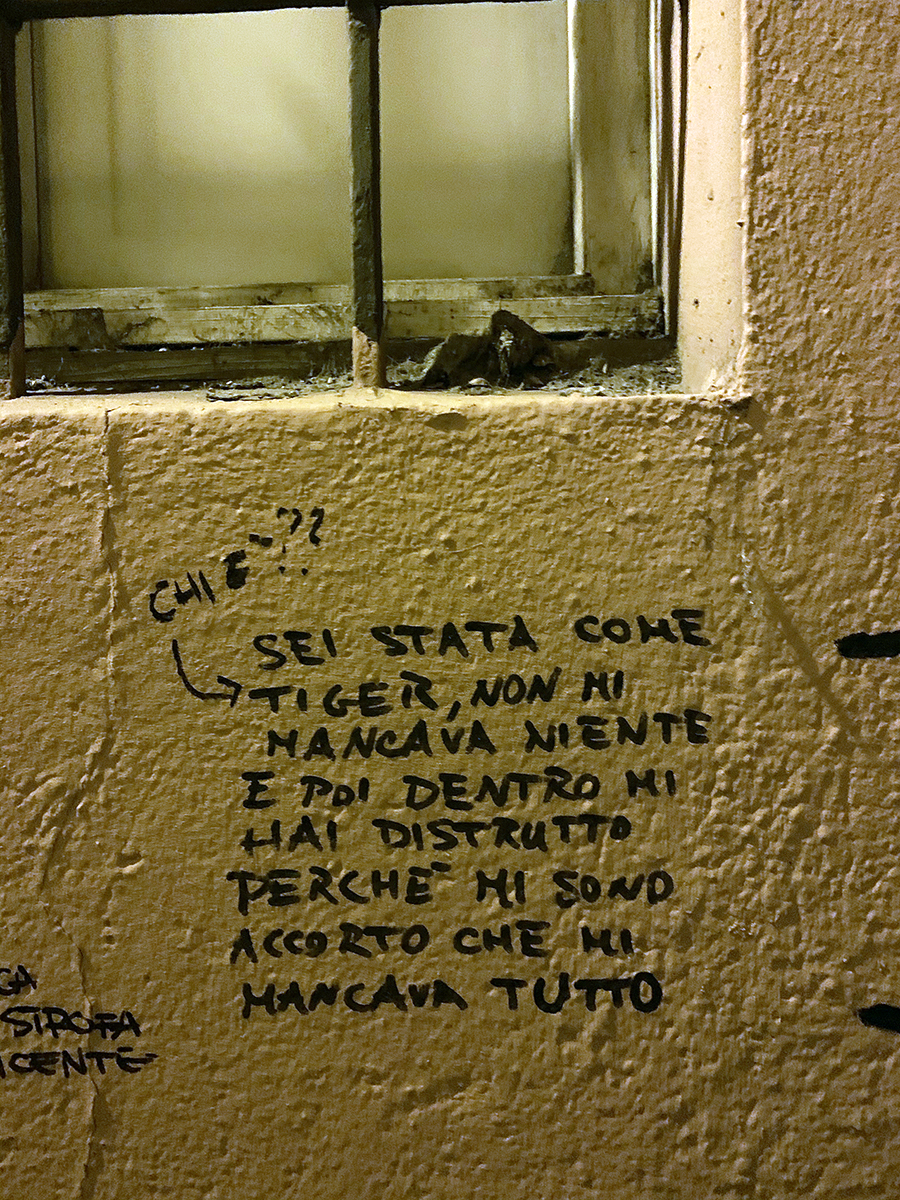 CHI E`??
SEI STATA COME
TIGER, NON MI
MANCAVA NIENTE
E POI DENTRO MI
HAI DISTRUTTO
PERCHE` MI SONO
ACCORTO CHE MI
MANCAVA TUTTO
GA
STROFA
ICENTE